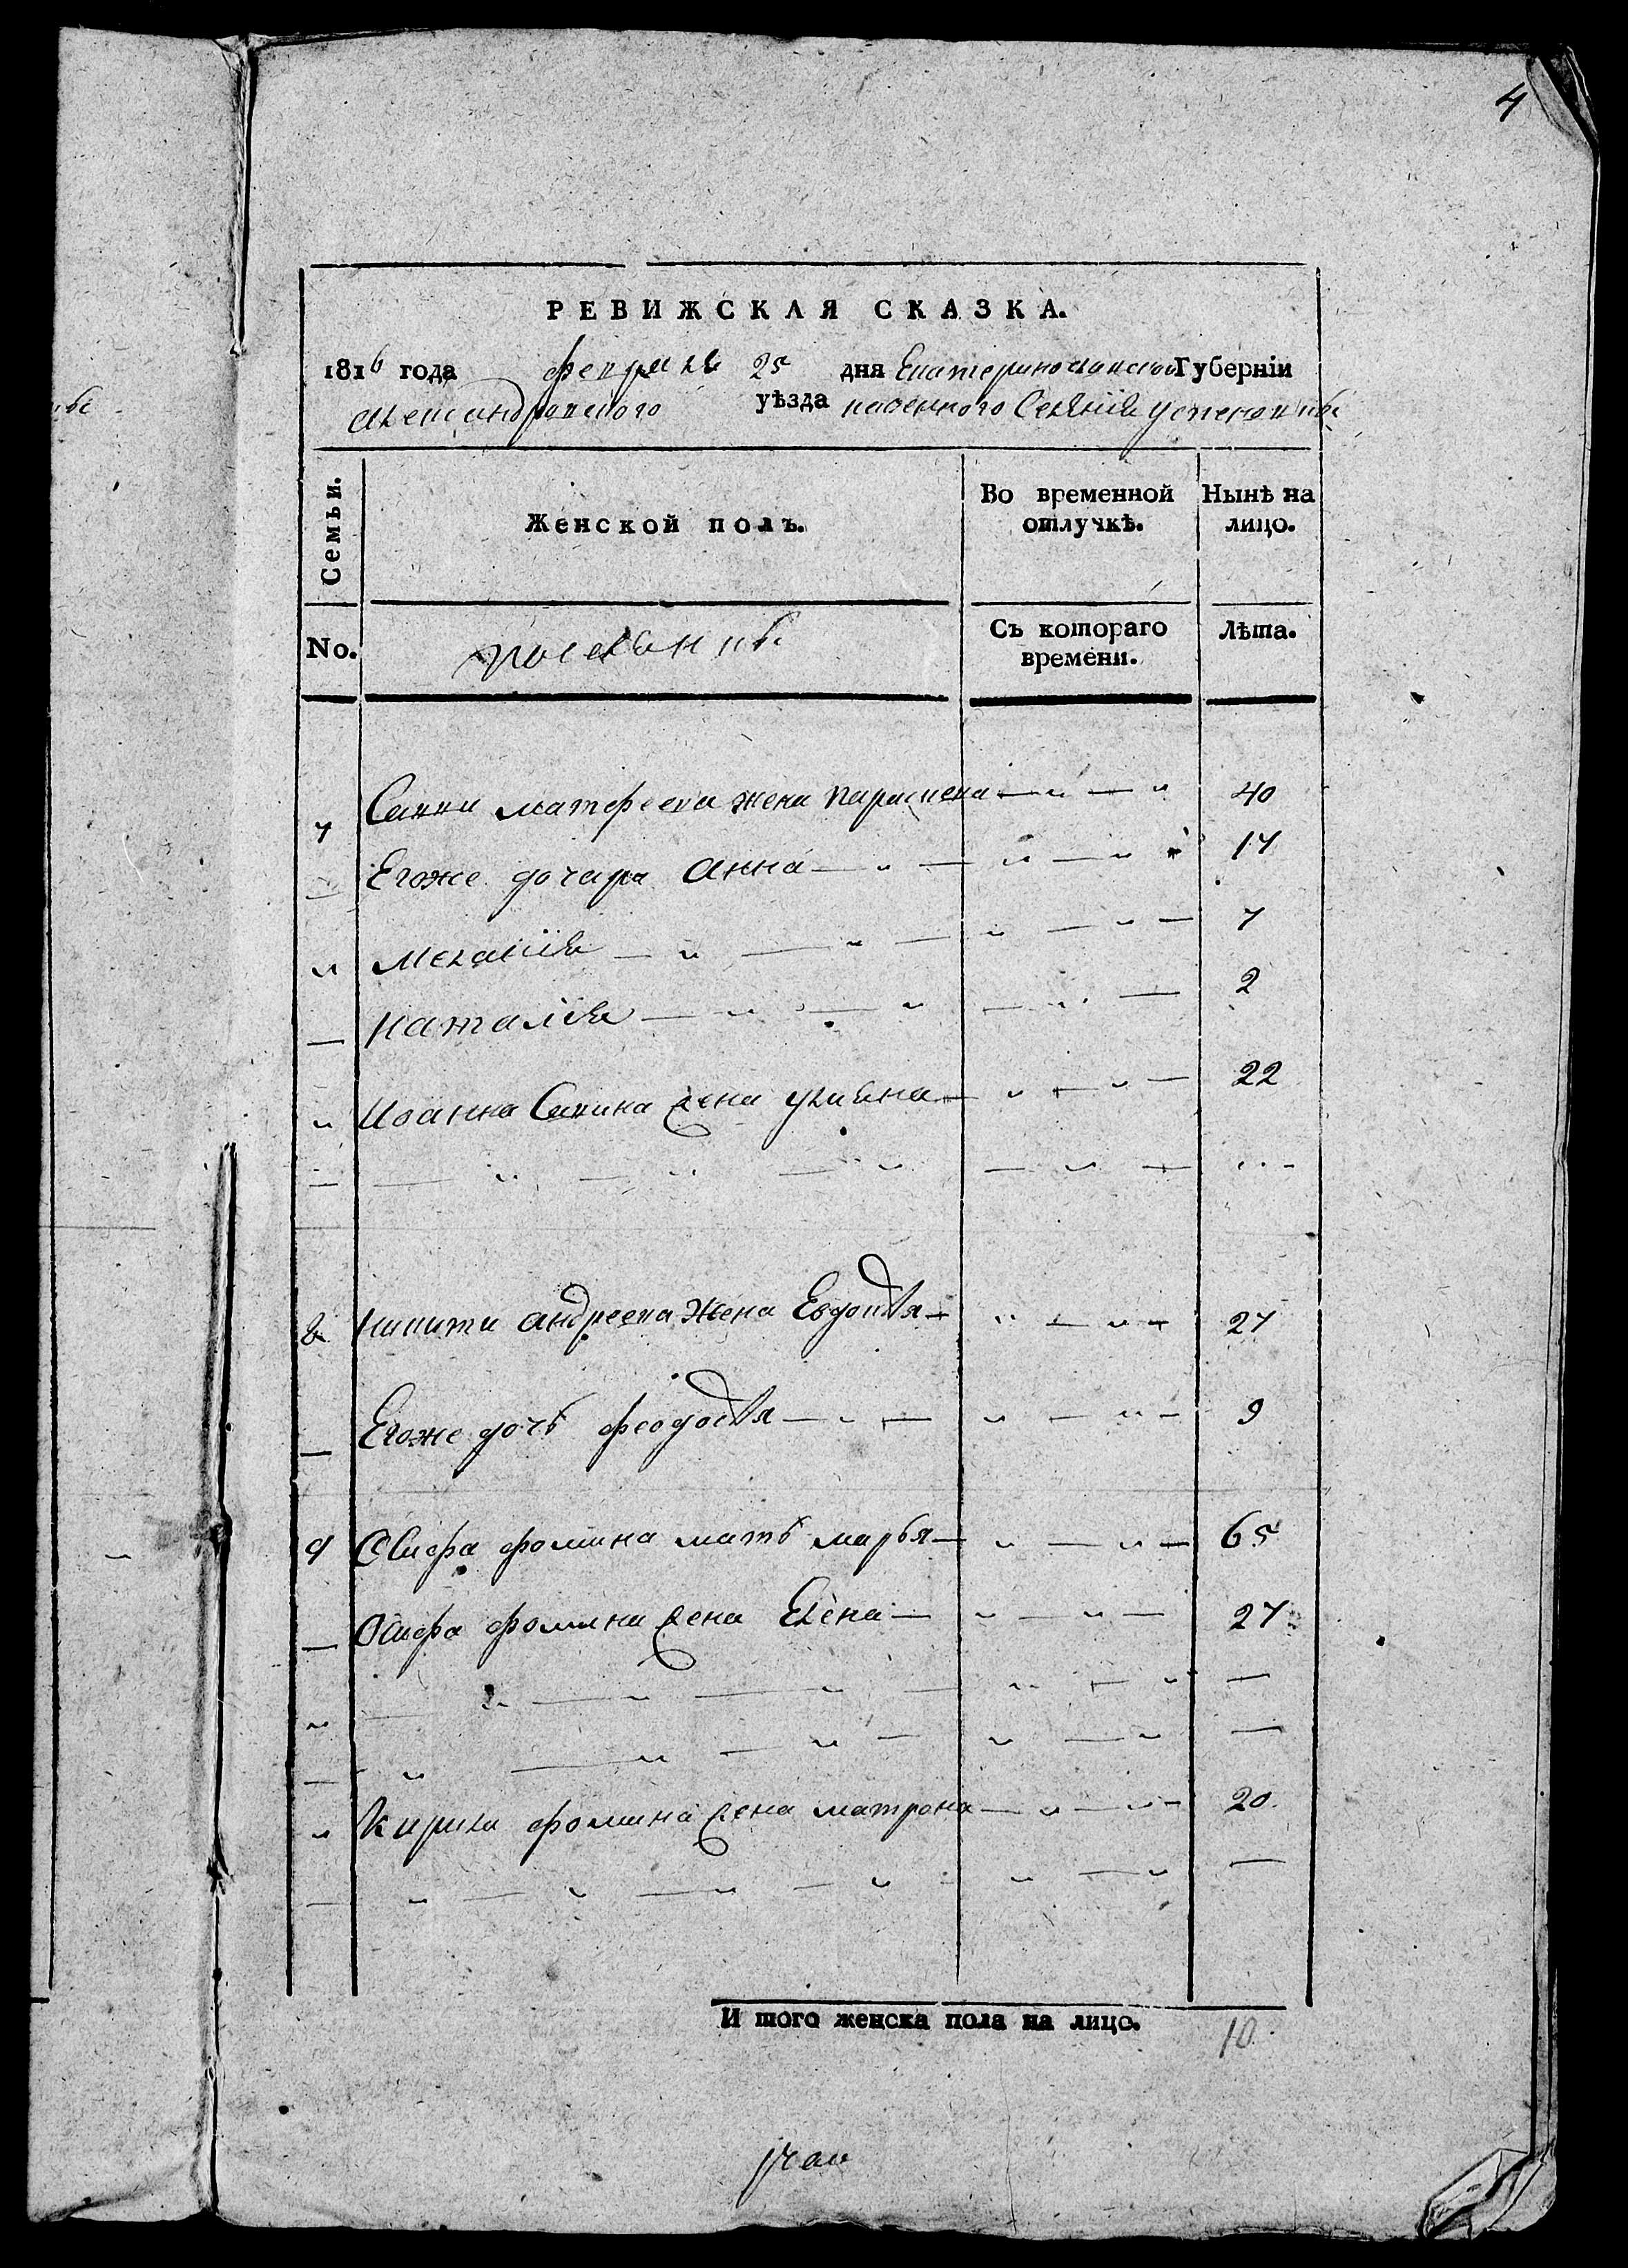 4
РЕВИЖСКАЯ СКАЗКА.
1816 года февраля 25 дня Екатеринославской Губерніи
александровского уѣзда казенного Селенія успеновки
Семьи.
Женской полъ.
Во временной отлучкѣ.
Нынѣ на лицо.
No.
поселянки
Съ котораго времени.
Лѣта.
7 Савви матфеева жена параскева — " — " 40
— Егоже дочери анна — " — " — " 17
" меланія — " — " — " — " — 7
— наталія — " — " — " — 2
" Иоанна Савина жена улияна — " — " — 22
8 никити андреева жена Евдокия — " — " — 27
— Егоже дочь феодосия — " — " — " — 9
9 Осифа фомина мать марья — " — " — 65
— Осифа фомина жена Елена — " — " — 27
" Кирила фомина жена матрона — " — " — 20
И того женска пола на лицо. 10